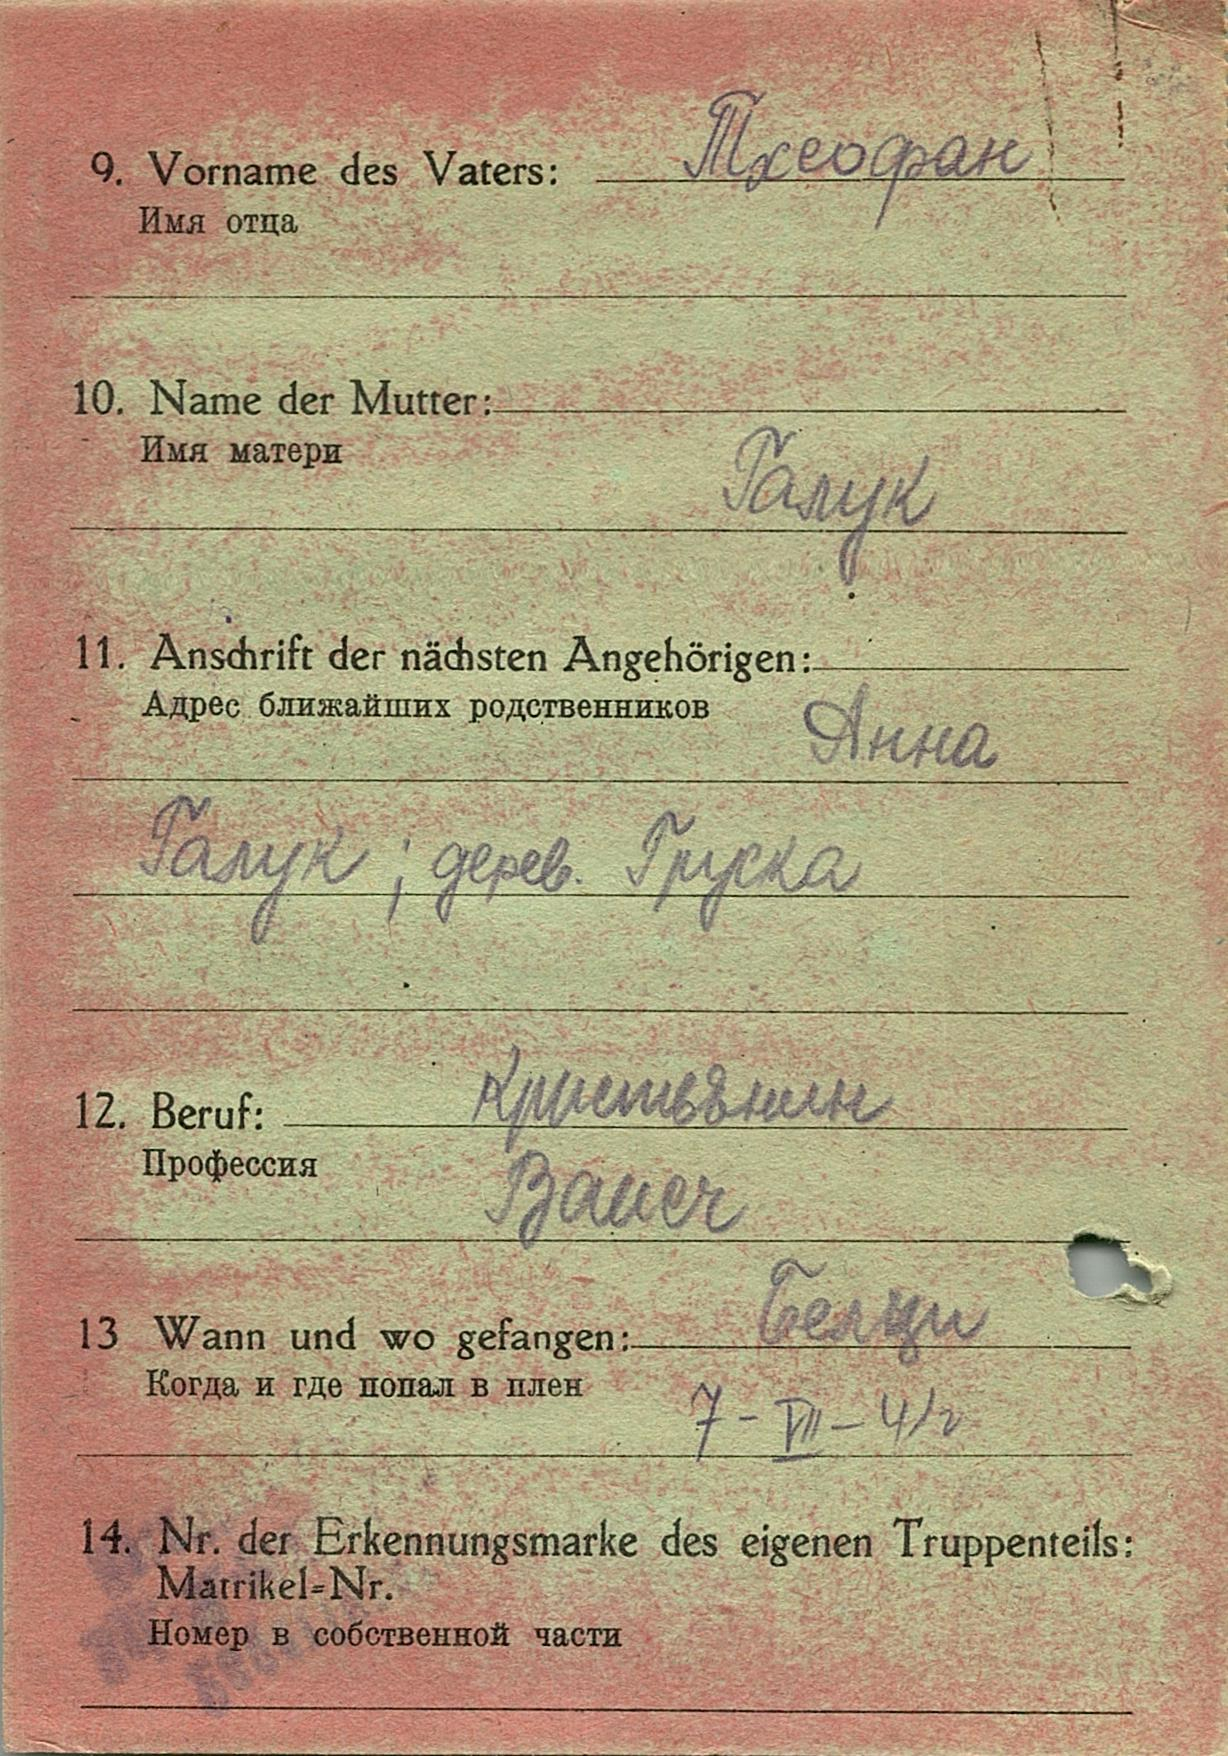 9. Vorname des Vaters: Тхеофан
Имя отца
10. Name der Mutter:
Имя матери
Галук
11. Anschrift der nächsten Angehörigen:
Адрес ближайших родственников
Анна
Галук; дерев. Груска
12. Beruf: Кристьянин
Профессия
13 Wann und wo gefangen: Белци
Когда и где попал в плен
7-VII-41г
14. Nr. der Erkennungsmarke des eigenen Truppenteils:
Matrikel=Nr.
Номер в собственной части